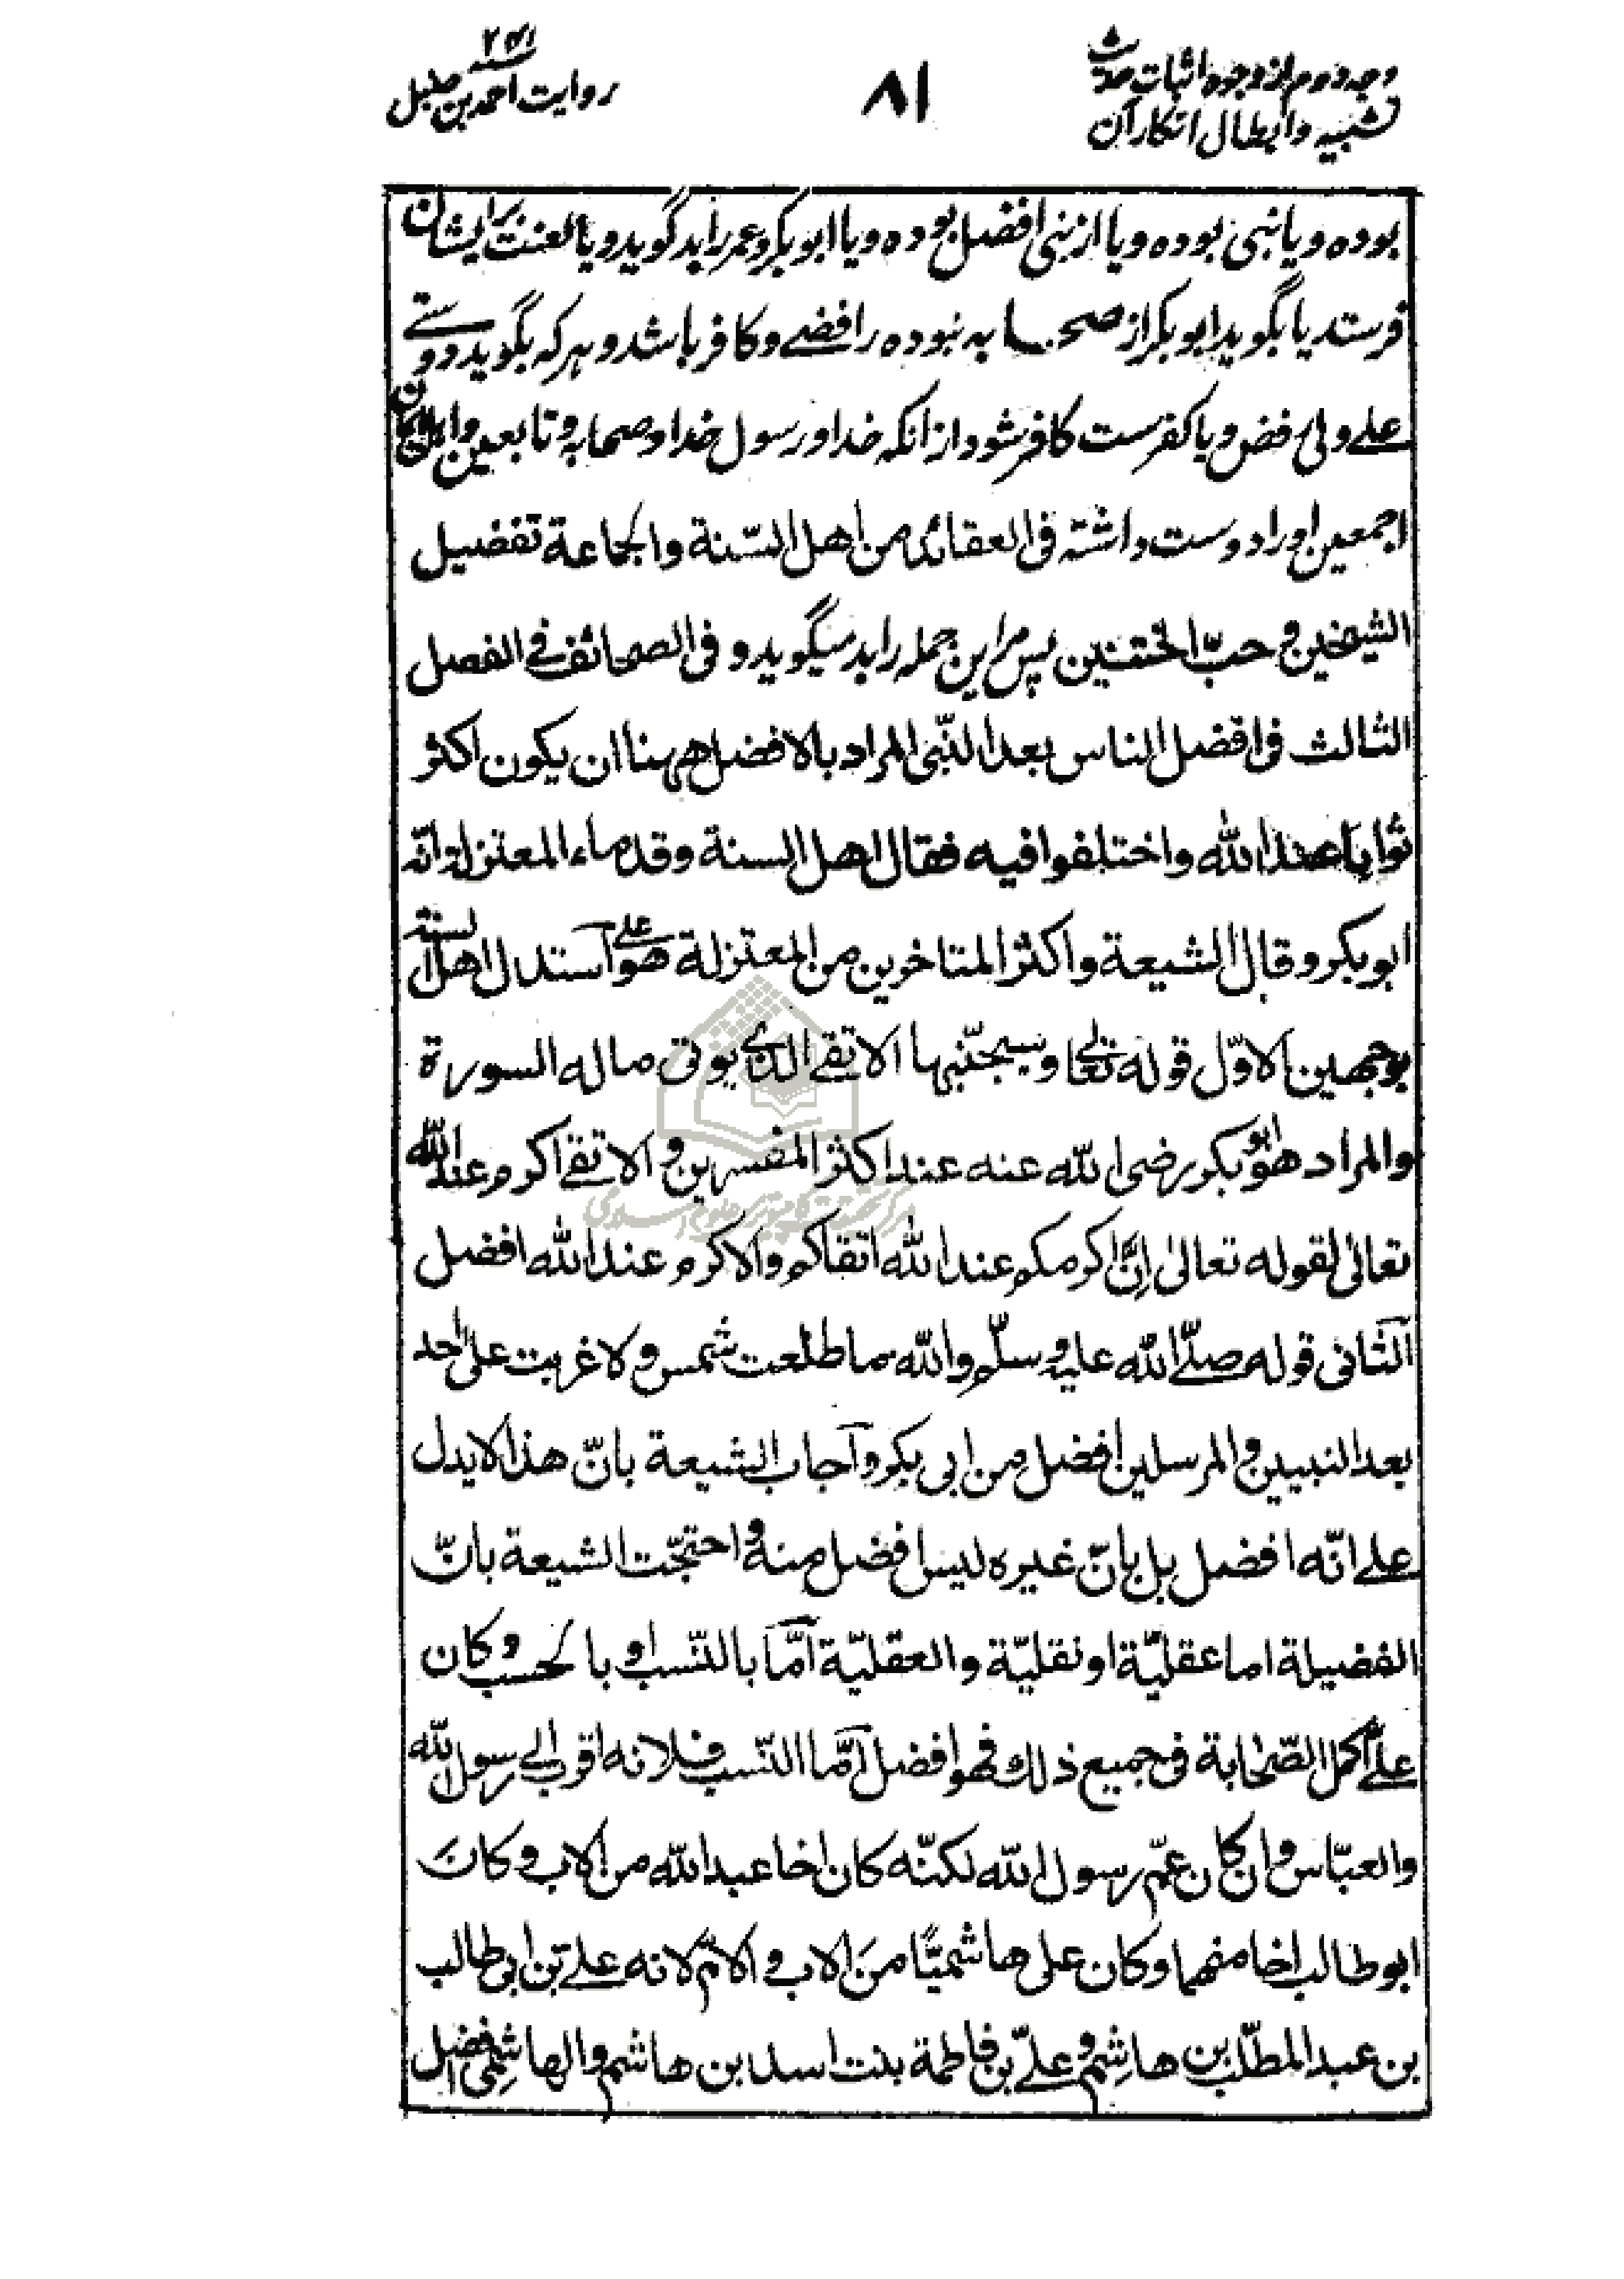 وجه دوم از وجوه اثبات حدیث
تشبیه و ابطال انکار آن
۸۱
روایت احمد بن حنبل
بوده و یا نبی بوده و یا از نبی افضل بوده و یا ابوبکر و عمر را بد گوید و یا لعنت بر ایشان
فرستد یا بگوید ابوبکر از صحابه نبوده رافضے و کافر باشد و هر که بگوید دوستے
علے ولی رفض و یا کفرست کافر شود از انکه خدا و رسول خدا و صحابه و تابعین و
اجمعین او را دوست داشته فی العقائد من اهل السّنة والجماعة تفضیل
الشیخین و حبّ الختنین پس مر این جمله را بد میگوید و فی الصحائف فے الفصل
الثالث فی افضل الناس بعد النّبی المراد بالافضل ههنا ان یکون اکثر
ثوابا عند الله واختلفوا فیه فقال اهل السنة وقدماء المعتزلة انّه
ابو بکر وقال الشیعة واکثر المتاخرین من المعتزلة هو علے استدل اهل السنة
بوجهین الاوّل قوله تعالی وسیجنّبها الاتقے الذی یوتی ماله السورة
والمراد هو ابو بکر رضی الله عنه عند اکثر المفسرین و الاتقے اکرم عند الله
تعالی لقوله تعالی اِنَّ اکرمکم عند الله اتقاکم والاکرم عند الله افضل
الثانی قوله صلّے الله علیه وسلّم والله ما طلعت شمس و لا غربت علی احد
بعد النبیین والمرسلین افضل من ابی بکر واجاب الشیعة بانّ هذا لا یدل
علے انّه افضل بل بانّ غیره لیس افضل منه واحتجّت الشیعة بانّ
الفضیلة اما عقلیّة او نقلیّة والعقلیّة امّا بالنّسب او بالحسب وکان
علیّ اکمل الصّحابة فی جمیع ذلك فهو افضل امّا النّسب فلانه اقرب الے رسول الله
والعبّاس وان کان عمّ رسول الله لکنّه کان اخا عبد الله من الاب وکان
ابو طالب اخا منهما وکان علی هاشمیًّا من الاب والامّ لانه علے بن ابی طالب
بن عبد المطّلب بن هاشم وعلیّ بن فاطمة بنت اسد بن هاشم والهاشمی افضل